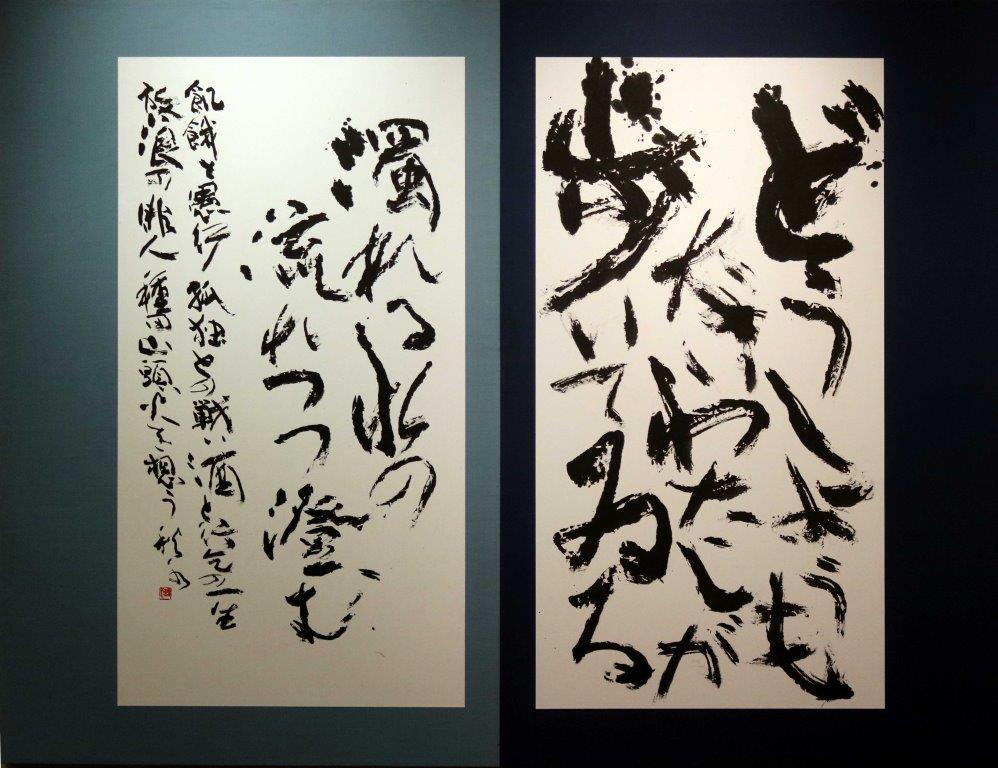 どうしようも
ないわたしが
歩いてゐる
濁れる水の
流れつつ澄む
飢餓と愚行 孤独との戦い 酒と行乞の一生
放浪の俳人 種田山頭火を想う